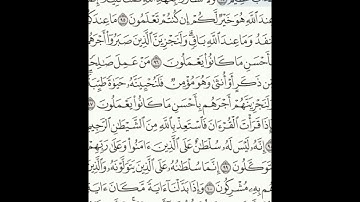 عِندَ ٱللَّهِ هُوَ خَيْرٌ لَّكُمْ إِن كُنتُمْ تَعْلَمُونَ ۝٩٥ مَا عِندَكُمْ
يَنفَدُ وَمَا عِندَ ٱللَّهِ بَاقٍ وَلَنَجْزِيَنَّ ٱلَّذِينَ صَبَرُوٓا۟ أَجْرَهُم
بِأَحْسَنِ مَا كَانُوا۟ يَعْمَلُونَ ۝٩٦ مَنْ عَمِلَ صَٰلِحًا
مِّن ذَكَرٍ أَوْ أُنثَىٰ وَهُوَ مُؤْمِنٌ فَلَنُحْيِيَنَّهُۥ حَيَوٰةً طَيِّبَةً
وَلَنَجْزِيَنَّهُمْ أَجْرَهُم بِأَحْسَنِ مَا كَانُوا۟ يَعْمَلُونَ ۝٩٧
فَإِذَا قَرَأْتَ ٱلْقُرْءَانَ فَٱسْتَعِذْ بِٱللَّهِ مِنَ ٱلشَّيْطَٰنِ ٱلرَّجِيمِ
۝٩٨ إِنَّهُۥ لَيْسَ لَهُۥ سُلْطَٰنٌ عَلَى ٱلَّذِينَ ءَامَنُوا۟ وَعَلَىٰ رَبِّهِمْ
يَتَوَكَّلُونَ ۝٩٩ إِنَّمَا سُلْطَٰنُهُۥ عَلَى ٱلَّذِينَ يَتَوَلَّوْنَهُۥ وَٱلَّذِينَ
هُم بِهِۦ مُشْرِكُونَ ۝١٠٠ وَإِذَا بَدَّلْنَآ ءَايَةً مَّكَانَ ءَايَةٍ